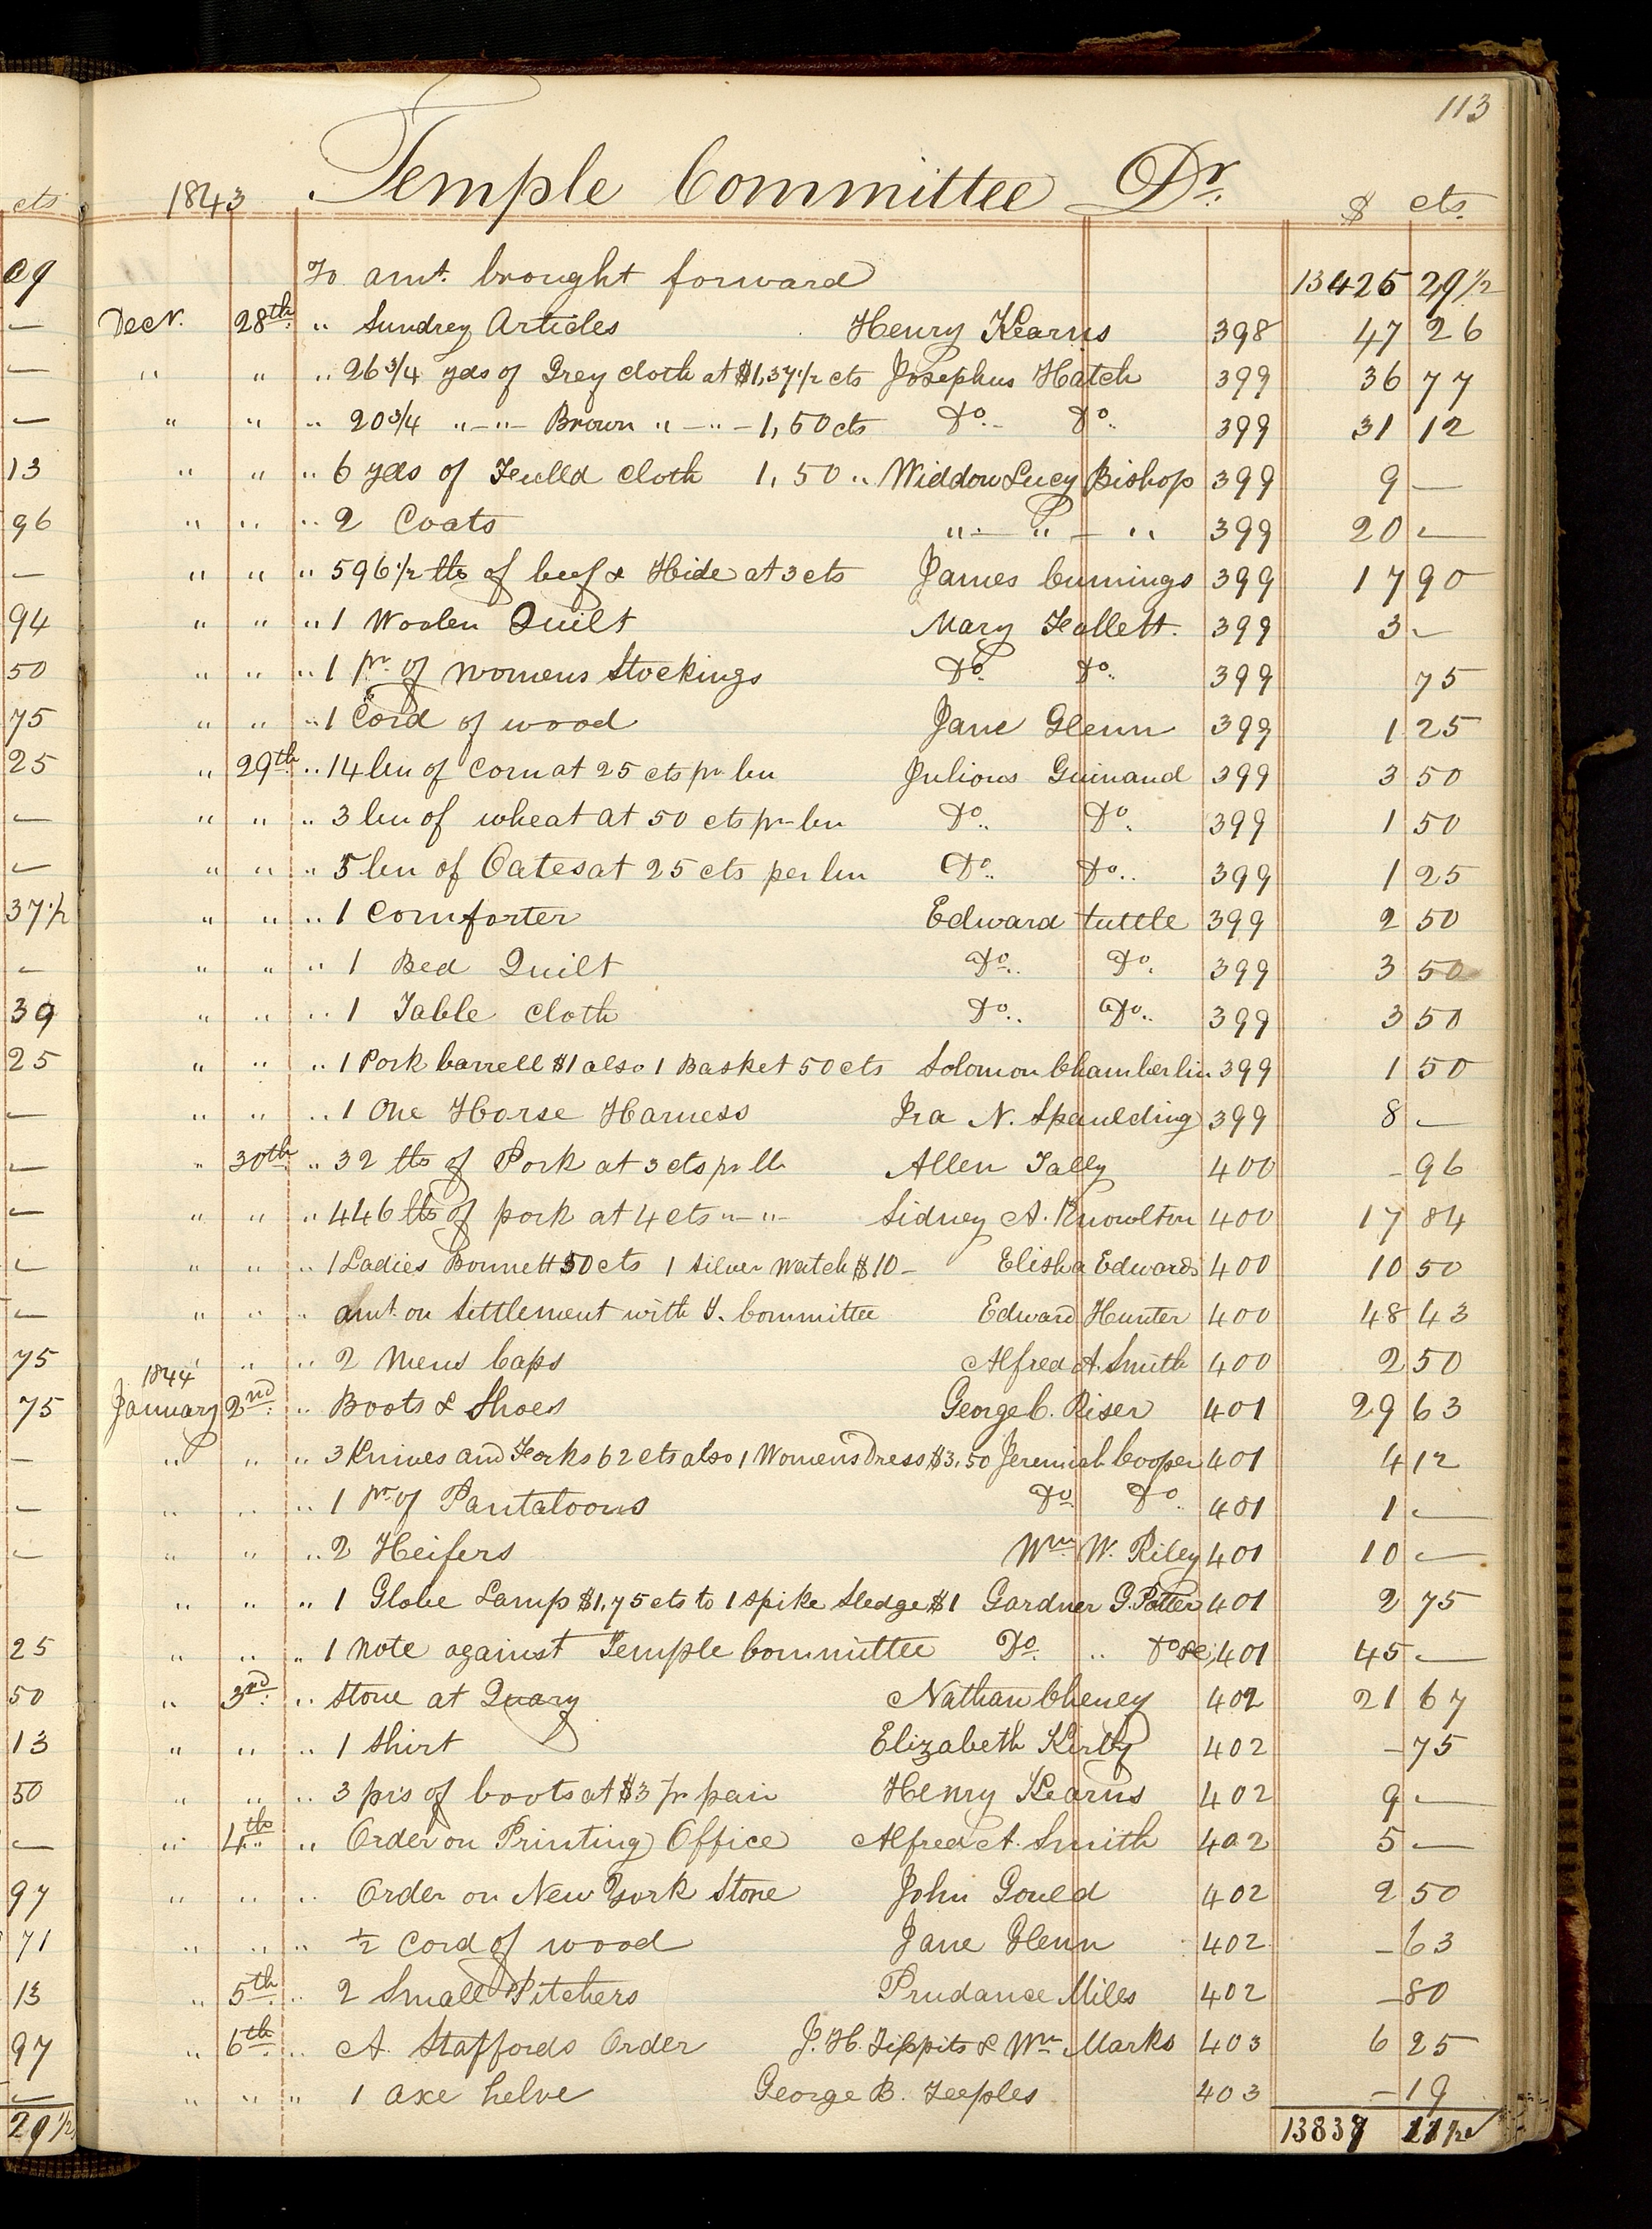 113
cts 1843 Temple Committee Dr. $ cts.
09 To amt. brought forward 13425 29 1/2
— Decr. 28th " Sundrey Articles Henry Kearns 398 47 26
— " " " 26 3/4 yds of Grey cloth at $1,37 1/2 cts Josephus Hatch 399 36 77
— " " " 20 3/4 "—"— Brown "—"— 1,50 cts Do.. Do.. 399 31 12
13 " " " 6 yds of Feulled cloth 1,50 " Widdow Lucy Bishop 399 9 —
96 " " " 2 Coats "— " — " 399 20 —
— " " " 596 1/2 lbs of beef & Hide at 3 cts James Cumings 399 17 90
94 " " " 1 Woolen Quilt Mary Hallett. 399 3 —
50 " " " 1 pr. of womens Stockings Do. Do.. 399 75
75 " " " 1 Cord of wood Jane Glenn 399 1 25
25 " 29th " 14 bu of corn at 25 cts pr bu Julious Guinand 399 3 50
— " " " 3 bu of wheat at 50 cts pr bu Do.. Do.. 399 1 50
— " " " 5 bu of Oates at 25 cts per bu Do.. Do.. 399 1 25
37 1/2 " " " 1 Comforter Edward tuttle 399 2 50
— " " " 1 Bed Quilt Do.. Do. 399 3 50
39 " " " 1 Table cloth Do.. Do.. 399 3 50
25 " " " 1 Pork barrell $1 also 1 Basket 50 cts Solomon Chamberlin 399 1 50
— " " " 1 One Horse Harness Ira N. Spaulding 399 8 —
— " 30th " 32 lbs of Pork at 3 cts pr lb Allen Tally 400 — 96
— " " " 446 lbs of pork at 4 cts "—"— Sidney A. Knowlton 400 17 84
— " " " 1 Ladies Bonnett 50 cts 1 Silver Watch $10 — Elisha Edwards 400 10 50
— " " " amt. on Settlement with T. Committee Edward Hunter 400 48 43
75 " " " 2 mens Caps Alfred A. Smith 400 2 50
1844
75 January 2nd. " Boots & Shoes George C. Riser 401 29 63
— " " " 3 Knives and Forks 62 cts also 1 Womens Dress $3.50 Jeremiah Cooper 401 4 12
— " " " 1 pr. of Pantaloons Do. Do.. 401 1 —
— " " " 2 Heifers Wm. W. Riley 401 10 —
" " " 1 Globe Lamp $1,75 cts to 1 spike Sledge $1 Gardner G. Potter 401 2 75
25 " " " 1 note against Temple Committee Do. " Do 401 45 —
50 " 3rd. " stone at Quary Nathan Cheney 402 21 67
13 " " " 1 Shirt Elizabeth Kirby 402 — 75
50 " " " 3 prs of boots at $3 pr pair Henry Kearns 402 9 —
— " 4th " Order on Printing Office Alfred A. Smith 402 5 —
97 " " " Order on New York Store John Gould 402 2 50
71 " " " 1/2 cord of wood Jane Glenn 402 — 63
13 " 5th " 2 Small Pitchers Prudance Miles 402 — 80
97 " 6th. " A. Staffords Order J. H. Tippits & Wm Marks 403 6 25
— " " " 1 axe helve George B. Teeples 403 — 19
29 1/2 13837